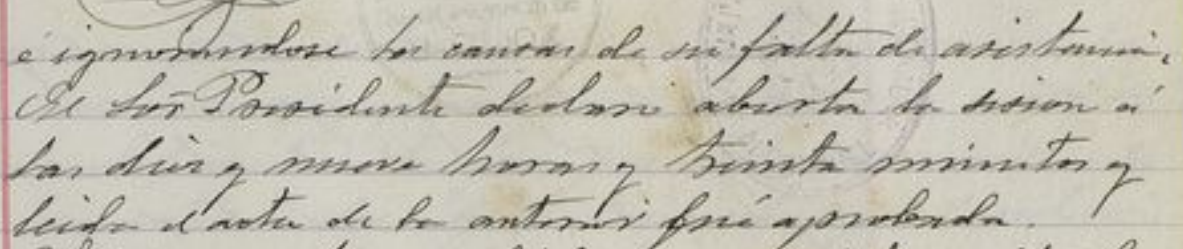 é ignorandose las causas de su falta de asistencia.
El Sor Presidente declaró abierta la sesion á
las diez y nueve horas y treinta minutos y
leida el acta de la anterior fué aprobada.